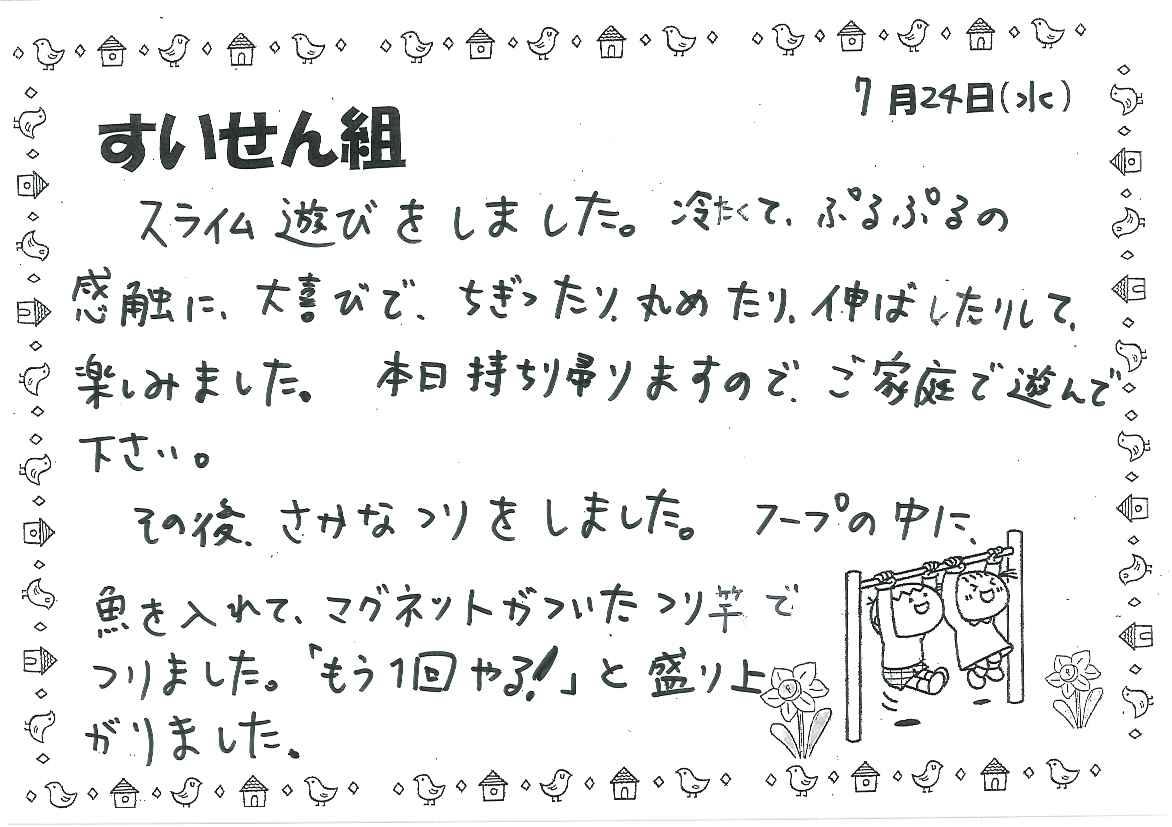 7月24日(水)
すいせん組
スライム遊びをしました。冷たくて、ぷるぷるの
感触に、大喜びで、ちぎったり、丸めたり、伸ばしたりして、
楽しみました。 本日持ち帰りますので、ご家庭で遊んで
下さい。
その後、さかなつりをしました。 フープの中に、
魚を入れて、マグネットがついたつり竿で
つりました。「もう1回やる!」と盛り上
がりました。